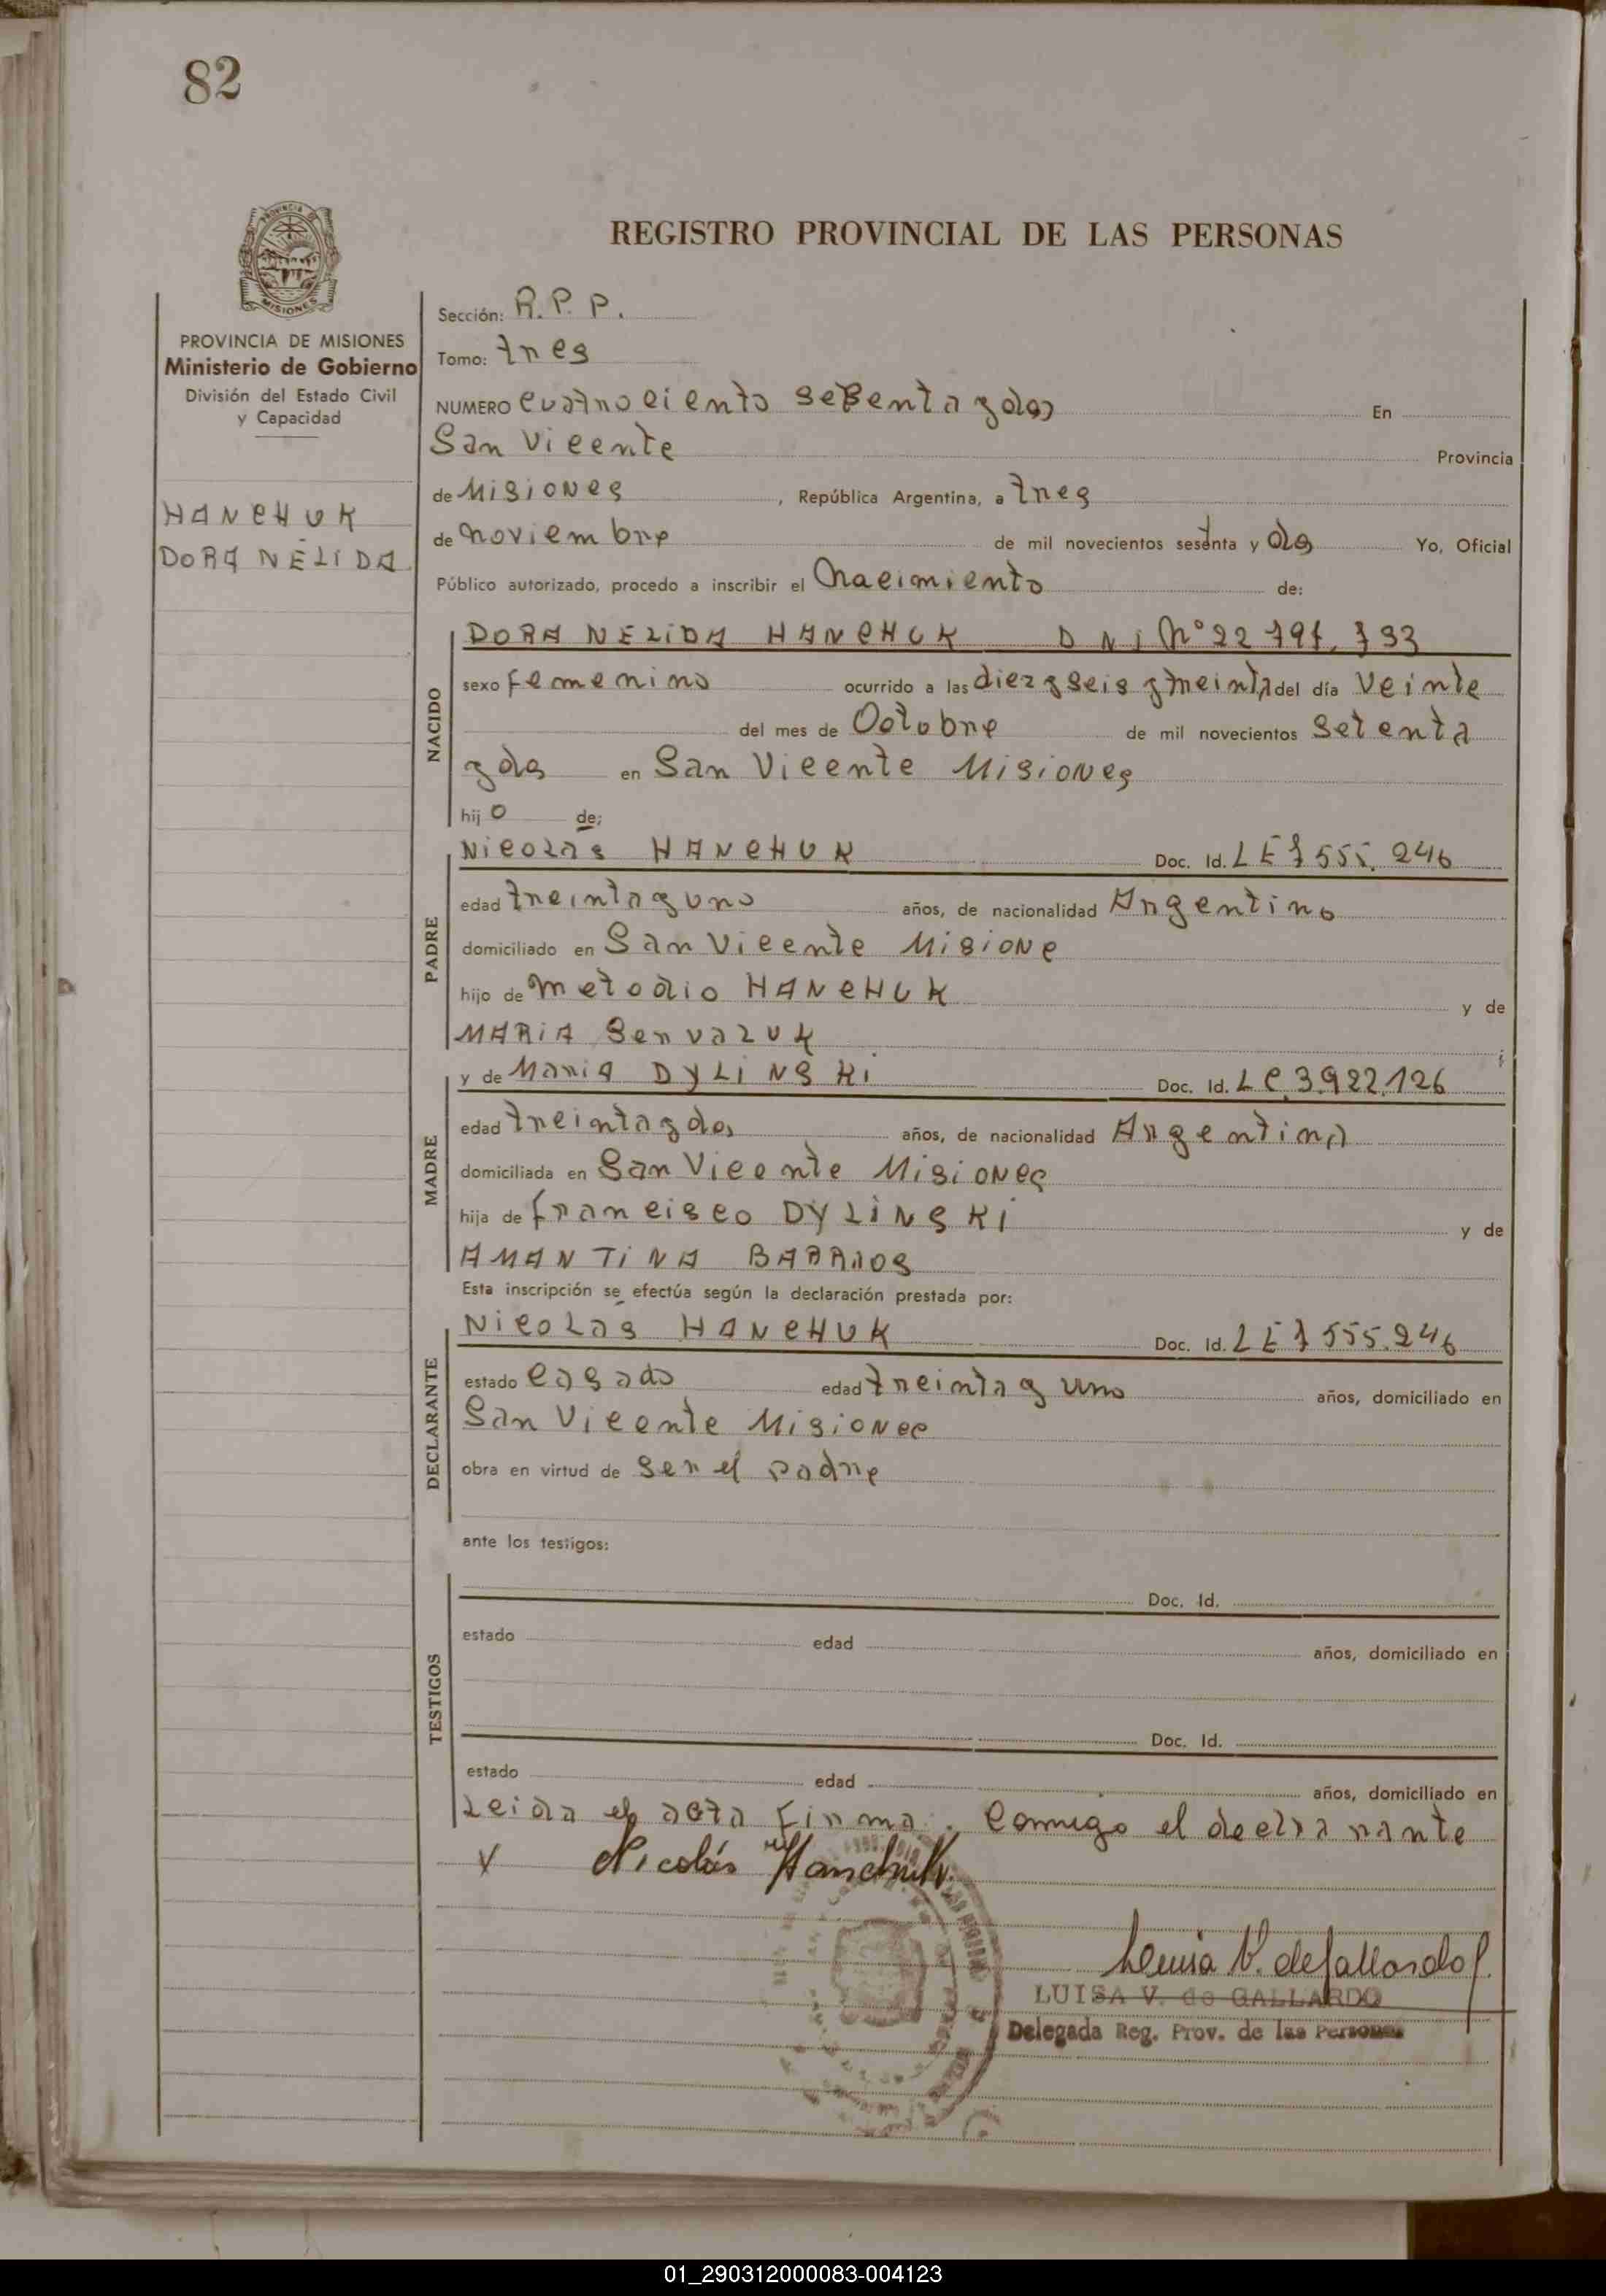 82
PROVINCIA DE MISIONES
Ministerio de Gobierno
División del Estado Civil
y Capacidad
HANCHUK
DORA NÉLIDA
REGISTRO PROVINCIAL DE LAS PERSONAS
Sección: R.P.P.
Tomo: tres
NUMERO cuatrociento setenta y dos En
San Vicente Provincia
de Misiones, República Argentina, a tres
de noviembre de mil novecientos setenta y dos Yo, Oficial
Público autorizado, procedo a inscribir el nacimiento de:
NACIDO
DORA NELIDA HANCHUK DNI Nº 22
sexo femenino ocurrido a las diez y seis y treinta del día veinte
del mes de Octobre de mil novecientos setenta
y dos en San Vicente Misiones
hijo de:
PADRE
Nicolás HANCHUK Doc. Id. LE 7 555.246
edad treinta y uno años, de nacionalidad Argentino
domiciliado en San Vicente Misione
hijo de Metodio HANCHUK y de
MARIA Servazuk
MADRE
y de Maria DYLINSKI Doc. Id. LC 3.922.126
edad treinta y dos años, de nacionalidad Argentina
domiciliada en San Vicente Misiones
hija de Francisco DYLINSKI y de
AMANTINA BARRIOS
Esta inscripción se efectúa según la declaración prestada por:
DECLARANTE
Nicolás HANCHUK Doc. Id. LE 7 555.246
estado casado edad treinta y uno años, domiciliado en
San Vicente Misiones
obra en virtud de ser el padre
ante los testigos:
TESTIGOS
Doc. Id.
estado edad años, domiciliado en
Doc. Id.
estado edad años, domiciliado en
Leida el acta firma conmigo el declarante
Nicolás Hanchuk
Luisa V. de Gallardo
LUISA V. de GALLARDO
Delegada Reg. Prov. de las Personas
01_290312000083-004123